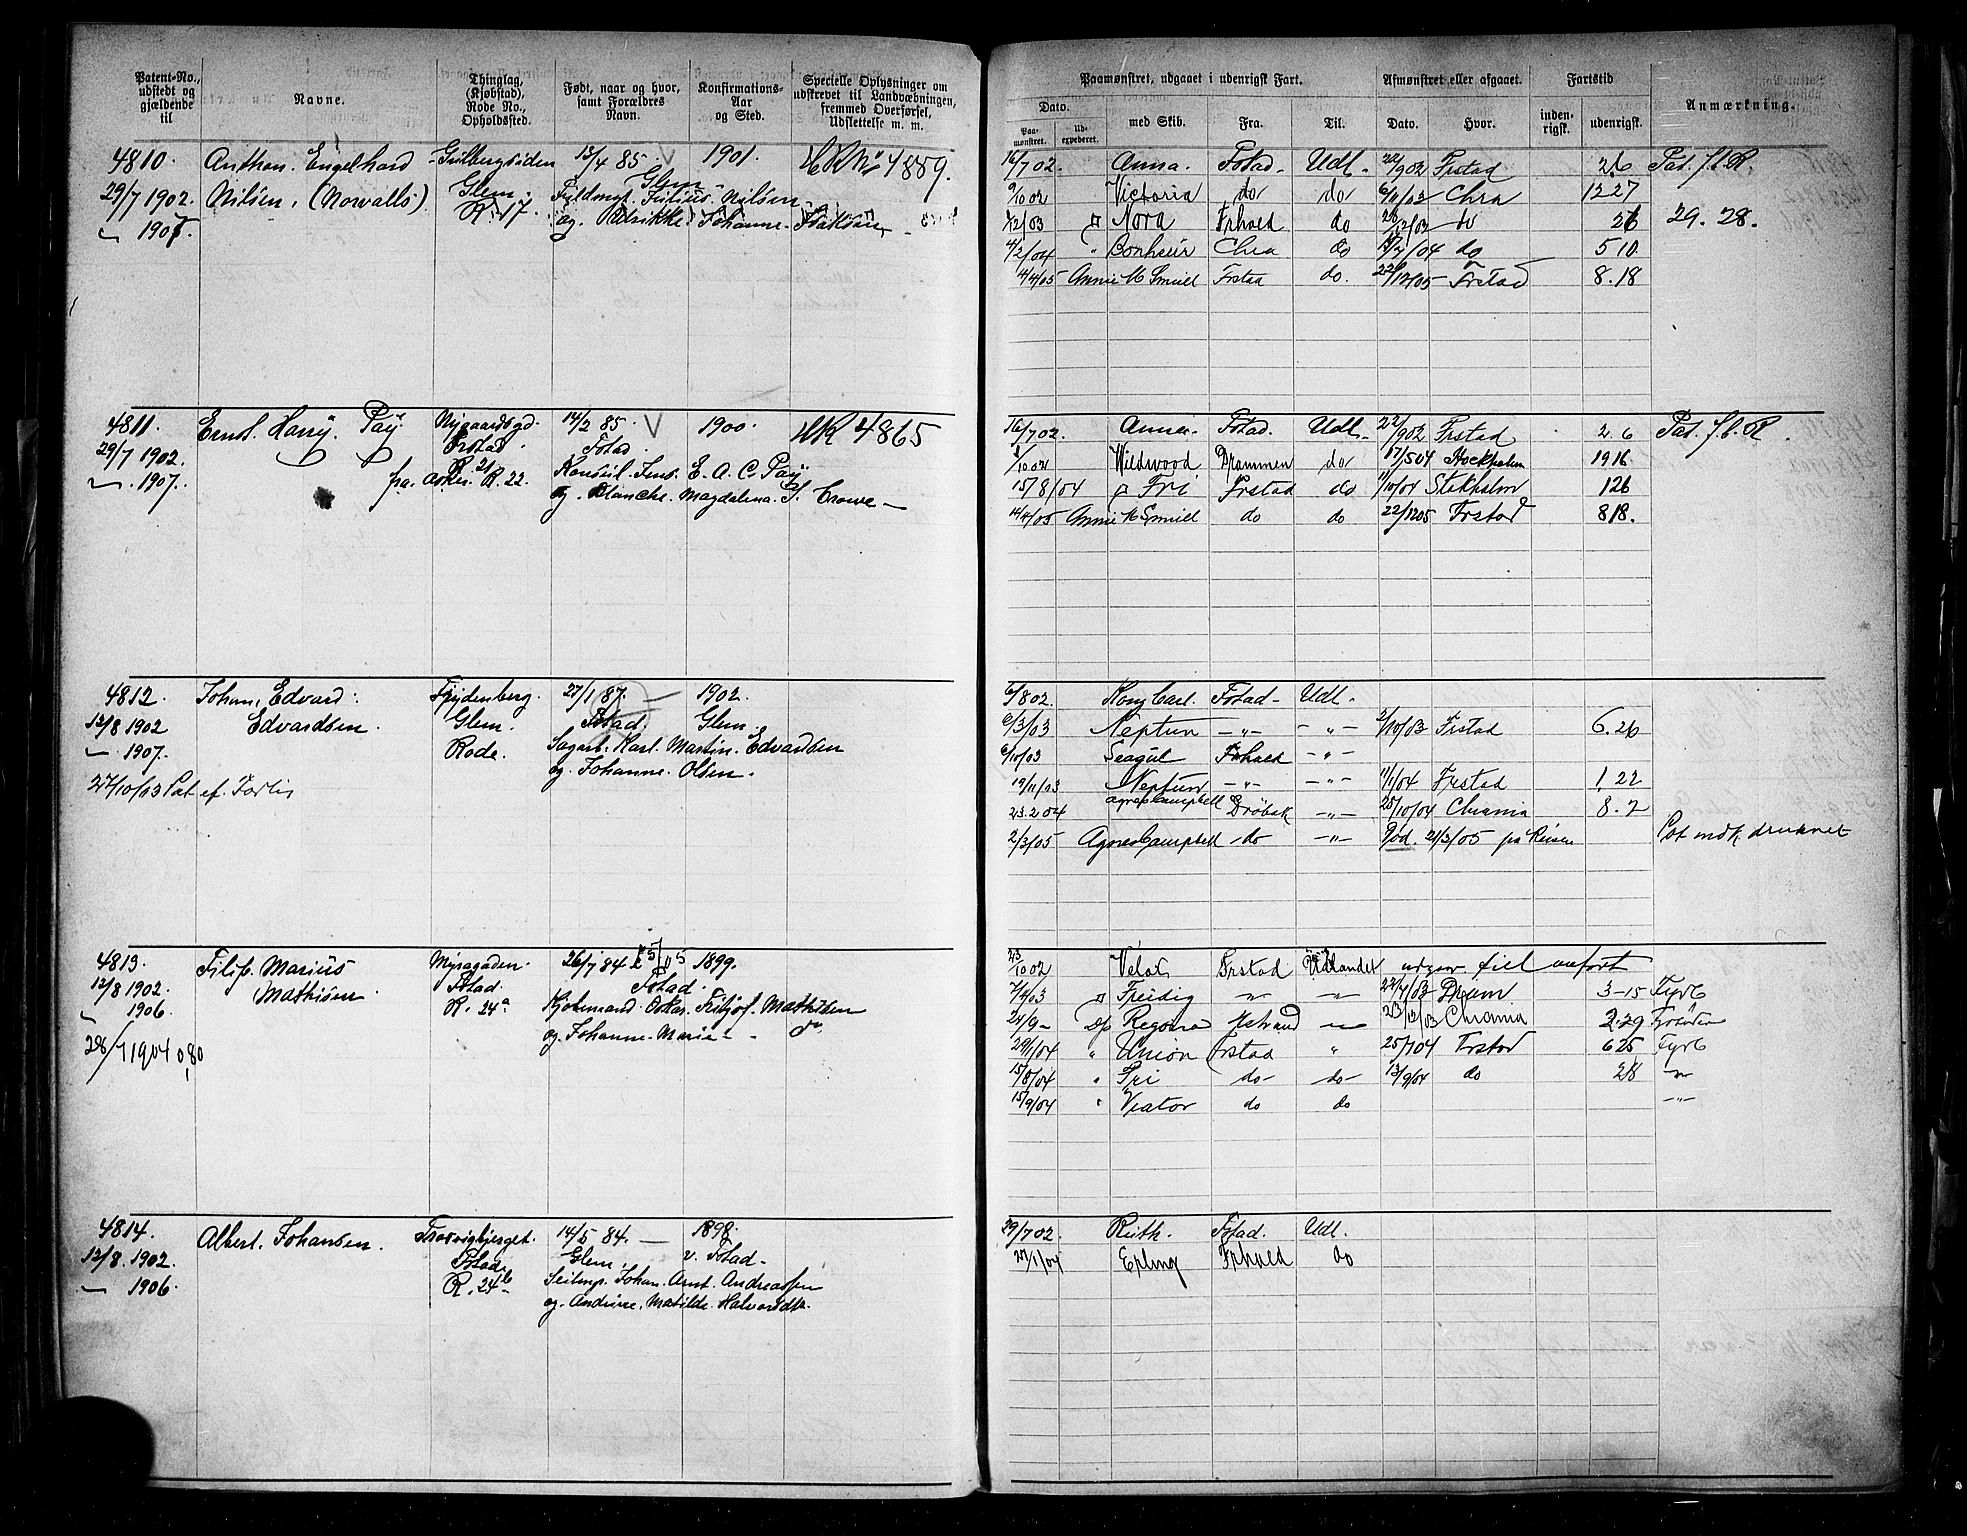 Patent-No., udstedt og gjældende til
Navne.
Thinglag, (Kjøbstad), Rode No., Opholdssted.
Født, naar og hvor, samt Forældres Navn.
Konfirmations-Aar og Sted.
Specielle Oplysninger om udskrevet til Landværbningen, fremmed Overførsel, Udslettelse m. m.
Paamønstret, udgaaet i udenrigsk Fart.
Afmønstret eller afgaaet.
Fartstid
Anmærkning.
Dato.
Paa-mønstret.
Ud-expederet.
med Skib.
Fra.
Til.
Dato.
Hvor.
inden-rigsk.
udenrigsk.
4810. Anthon Engelhard Gulbergsiden 13/4 85. V 1901. 4889.
29/7 1902. Nilsen, (Norvalls) Glem. Glem Julius Nilsen
" 1907. R. 17. og Ulrikke Johanne
16/7 02. Anna. Fstad. Udl. 22/902 Frstad 26 Pat. f. b. R.
9/10 02 Victoria do do 6/11/03 Chra 12 27
/12/03 Nora Frhald do 28/12/03 do 26 29. 28.
4/2/04 " Bonheur Chra do /04 do 5 10
4/4/05 Annie M Smull Frstad do. 22/12/05 Frstad 8.18
4811. Ernst. Harry. Paÿ Nygaardsgd. 14/2 85. V 1900. 4865
29/7 1902. Frstad. Fstad.
R. 21 Konsul. E. A. C. Paÿ
" 1907. fra Asker. R. 22. og. Blanche. Magdalena. S. Crowe
16/7 02. Anna. Fstad. Udl. 22/902 Frstad 2. 6 Pat. f. b. R.
/10 02 Wildwood Drammen do 17/5 04 Stockholm 19 16
15/8/04 Fri Frstad do 11/10/04 Stokholm 1 26
14/4/05 Annie M Smull do do 22/1205 Frstad 8 18.
4812. Johan, Edvard Frydenberg. 27/1 87. 1902.
12/8 1902 Edvardsen. Glem. Fstad Glem.
" 1907. Rode. Sagarb. Karl. Martin. Edvardsen
og. Johanne. Olsen.
27/10/03 Pat ef. Forlis
6/8 02. Kong Carl. Fstad- Udl.
/3/03 Neptun -"- -"- 2/10/03 Frstad 6.26
/10/03 Seagul Frhald -"-
19/11/03 Neptun -"- -"- 11/1/04 Frstad 1,22
23.2 04 Agnes Campbell Drøbak -"- 25/10/04 Chrania 8.7
2/3/05 Agnes Campbell do -"- Død. 21/3/05 på Reisen Pat druknet
4813. Filip. Marius Myragaden. 26/7 84 1899.
12/8 1902. Mathisen. Fstad. Fstad.
1906. R. 24a Kjøbmand. Oskar. Fritjof. Mathisen
og. Johanne. Marie
28/7 1904 0,80
23/10 02 Velox Frstad Udlandet anført
/03 Freidig " " 22/7/03 Dram 3-15 Fyrb
24/9- Dp Regona " 23/12/03 Chrania 2.29 Fyrbøder
29/1/04 " Union Frstad " 25/7 04 Frstad 6 25 Fyrb
15/8/04 " Fri do do 13/9/04 do 28 "
15/9/04 " Viator do do -"-
4814. Albert. Johansen. Trosvigbjerget. 14/5 84. 1898.
12/8. 1902. Fstad Glem. v. Fstad.
1906. R. 24b Johan. Arnt. Andreassen
og. Andrine. Matilde. Halvorsdtr.
29/7 02. Ruth. Fstad. Udl.
/1/04 Epling Frhald do